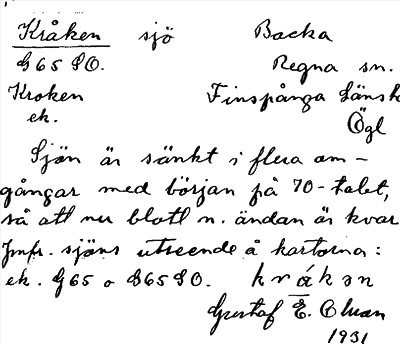 Kråken sjö Backa
G65 SO. Regna sn.
Kroken Finspånga länsk
ek. Ögl
Sjön är sänkt i flera om-
gångar med början på 70-talet,
så att nu blott n. ändan är kvar
Jmfr. sjöns utseende å kartorna:
ek. G65 o G65SO. kråkən
Gustaf E. Olsson
1931